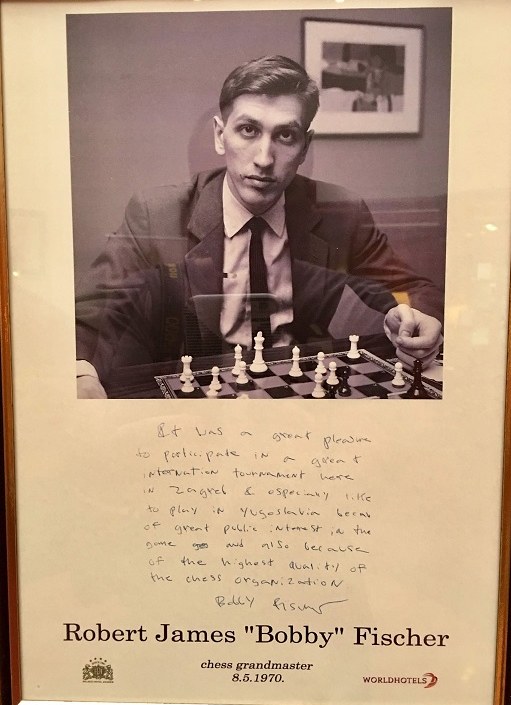 It was a great pleasure
to participate in a great
internation tournament here
in Zagreb & especially like
to play in Yugoslavia becau
of great public interest in the
game and also because
of the highest quality of
the chess organization
Bobby Fischer
Robert James "Bobby" Fischer
chess grandmaster
8.5.1970.
WORLDHOTELS